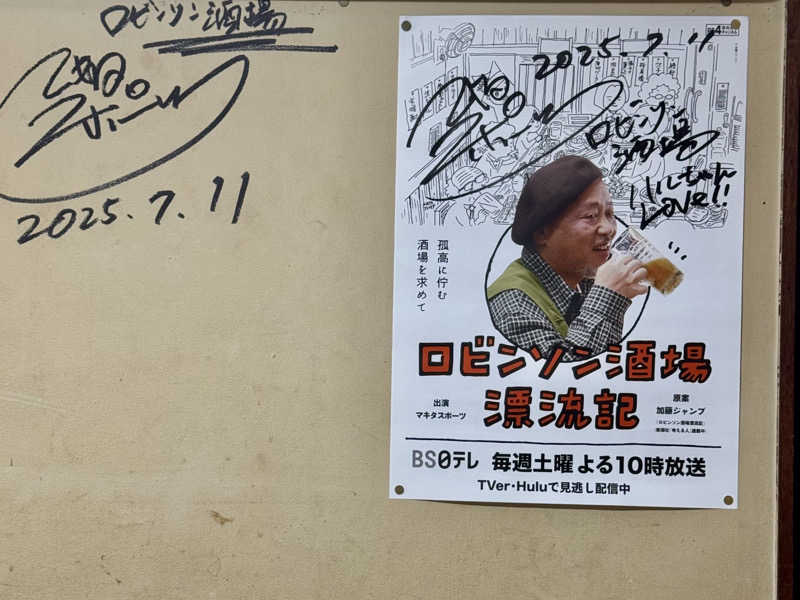 ロビンソン酒場
2025.7.11
2025.7.11
ロビンソン
酒場
LOVE!!
孤高に佇む
酒場を求めて
ロビンソン酒場
漂流記
出演
マキタスポーツ
原案
加藤ジャンプ
(「ロビンソン酒場漂流記」
(新潮社「考える人」連載中)
BS日テレ 毎週土曜 よる10時放送
TVer・Huluで見逃し配信中